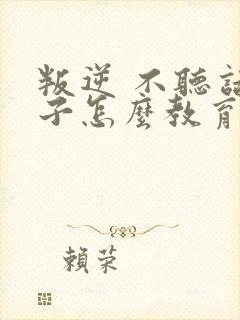 叛逆 不聽話
子怎麼教育
賴荣